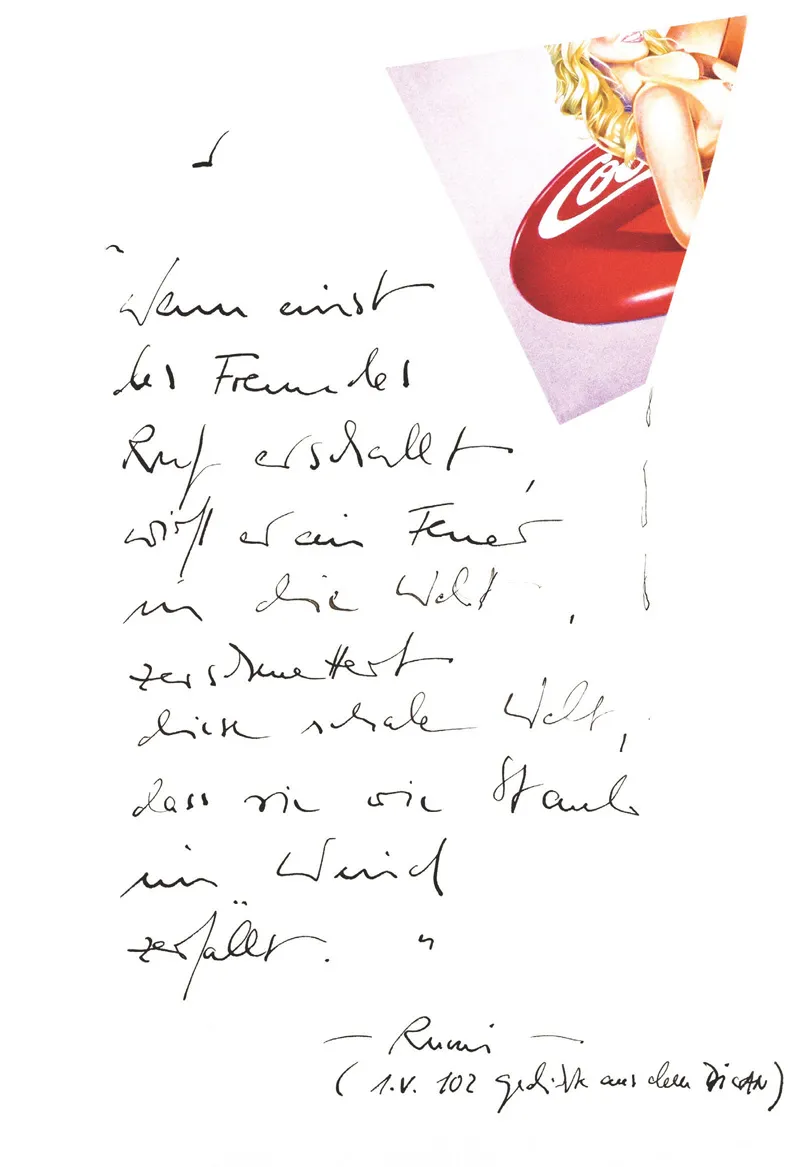 Coc
"Wenn einst
des Freundes
Ruf erschallt,
wirft er ein Feuer
in die Welt,
zerschmettert
diese schale Welt,
dass sie wie Staub
im Wind
zerfällt."
— Rumi —
(1.V. 102 gedichte aus dem DiwAN)